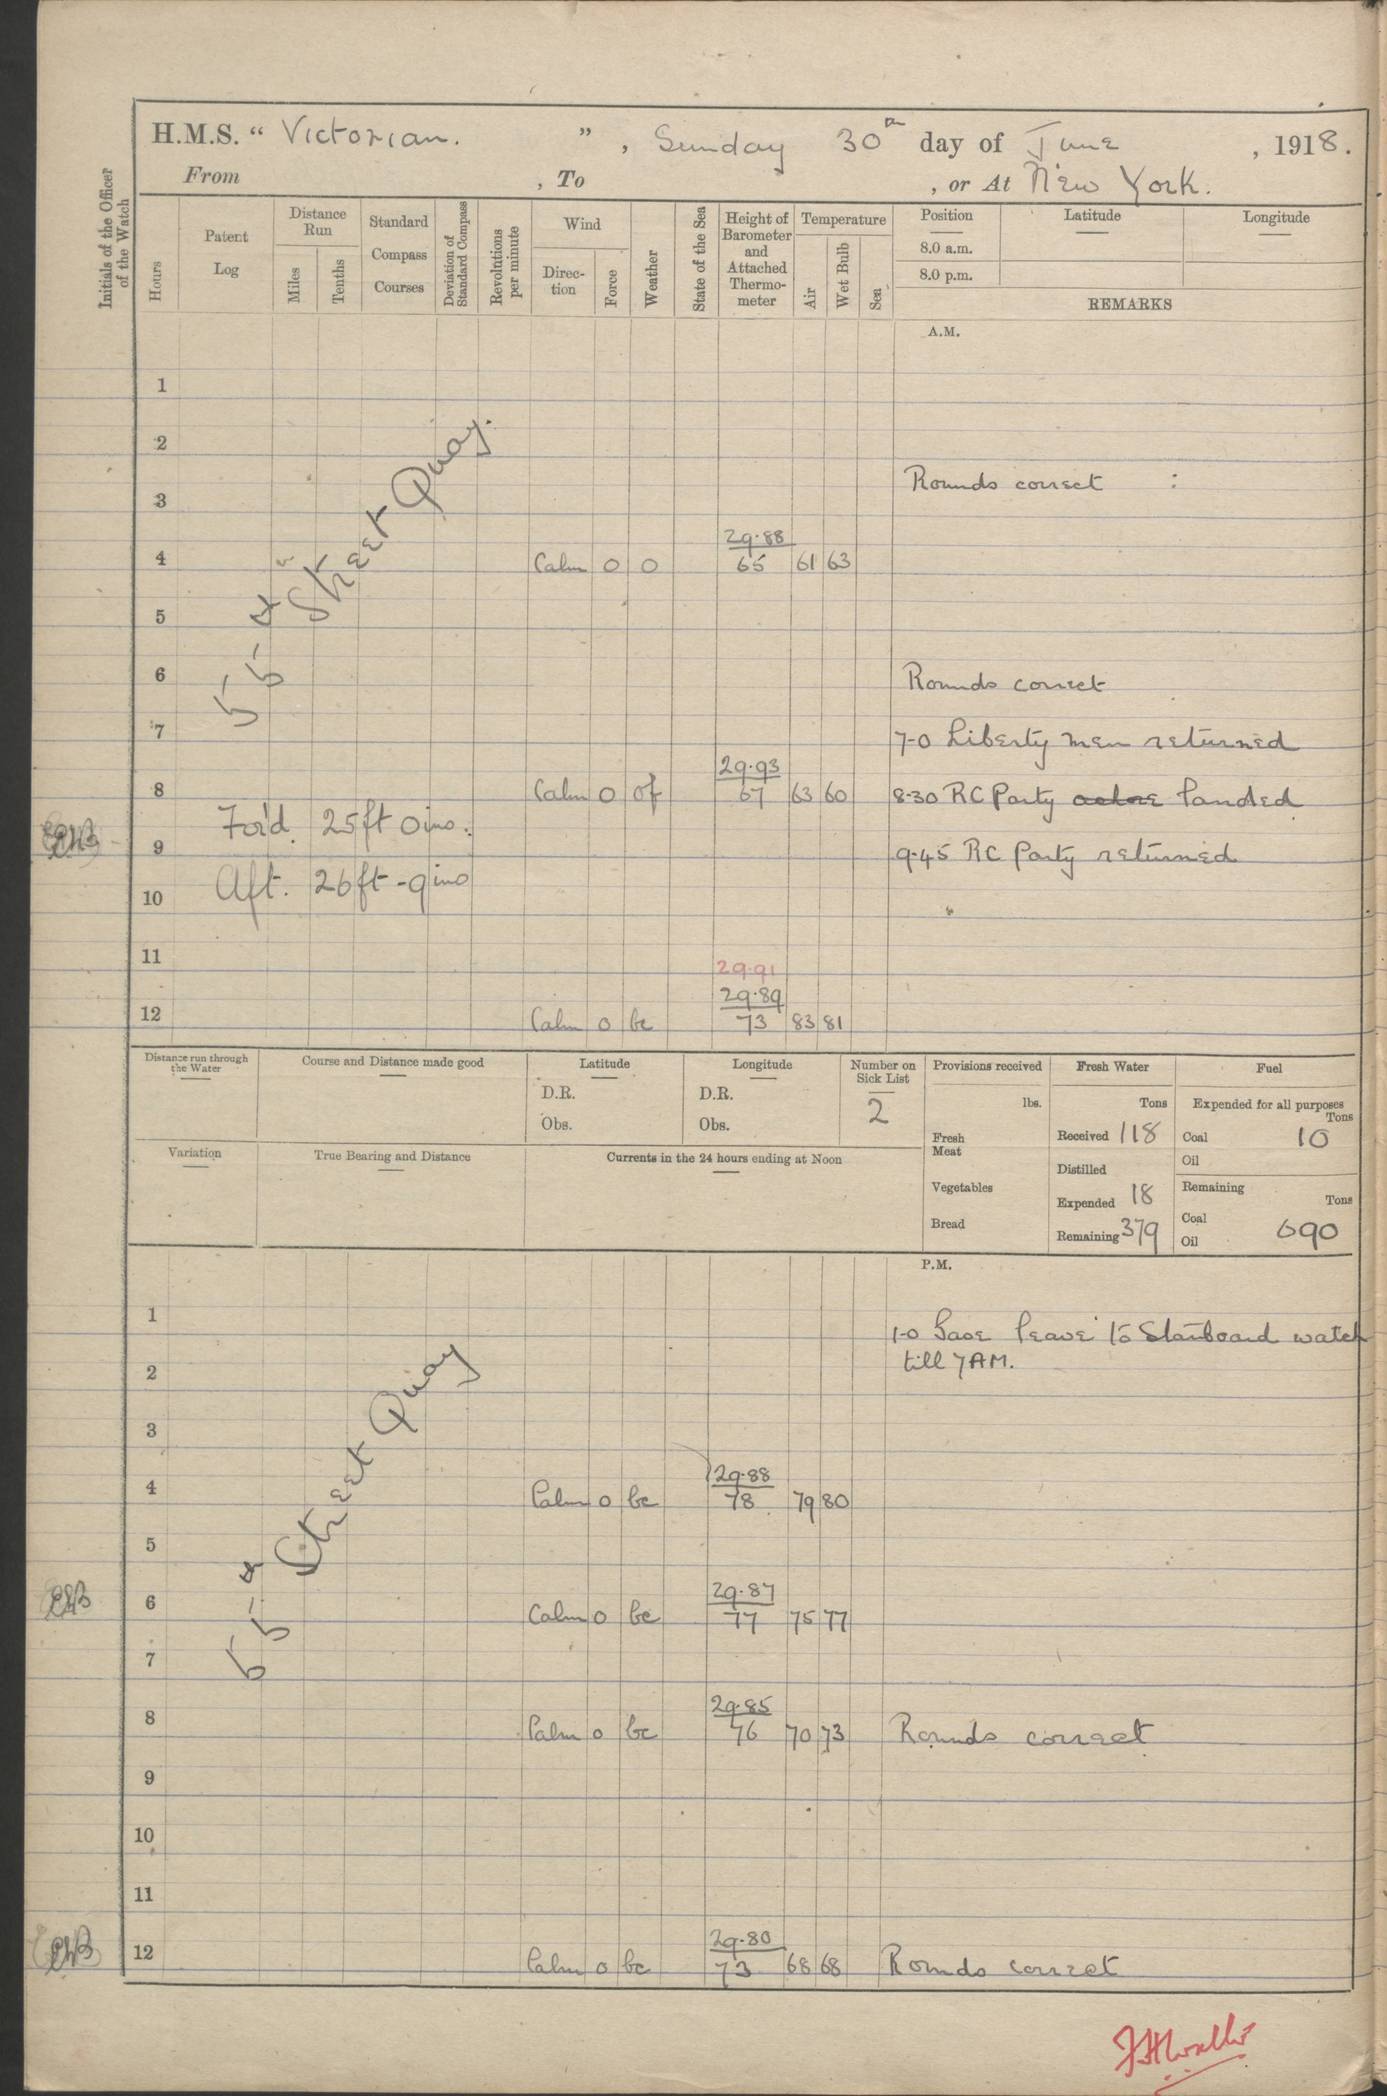 H.M.S. “ Victorian. ” , Sunday 30th day of June , 1918.
From , To , or At New York.
Initials of the Officer of the Watch
Hours
Patent Log
Distance Run
Miles
Tenths
Standard Compass Courses
Deviation of Standard Compass
Revolutions per minute
Wind
Direction
Force
Weather
State of the Sea
Height of Barometer and Attached Thermometer
Temperature
Air
Wet Bulb
Sea
Position Latitude Longitude
8.0 a.m.
8.0 p.m.
REMARKS
A.M.
1
2
Rounds correct :
3
55th Street Quay.
29.88
4 Calm 0 o 65 61 63
5
6 Rounds correct
7 7-0 Liberty men returned
29.93
8 Calm 0 of 67 63 60 8-30 RC Party landed
For'd 25 ft 0 ins.
9 9-45 RC Party returned
Aft. 26 ft - 9 ins
10
11
29.91
29.89
12 Calm 0 bc 73 83 81
Distance run through the Water
Course and Distance made good
Latitude
D.R.
Obs.
Longitude
D.R.
Obs.
Number on Sick List
2
Provisions received
lbs.
Fresh Meat
Vegetables
Bread
Fresh Water
Tons
Received 118
Distilled
Expended 18
Remaining 379
Fuel
Expended for all purposes
Tons
Coal 10
Oil
Remaining
Tons
Coal
Oil 690
Variation
True Bearing and Distance
Currents in the 24 hours ending at Noon
P.M.
1
1-0 Gave leave to Starboard watch
till 7 AM.
2
3
55th Street Quay
29.88
4 Calm 0 bc 78 79 80
5
29.87
6 Calm 0 bc 77 75 77
7
29.85
8 Calm 0 bc 76 70 73 Rounds correct
9
10
11
29.80
12 Calm 0 bc 73 68 68 Rounds correct